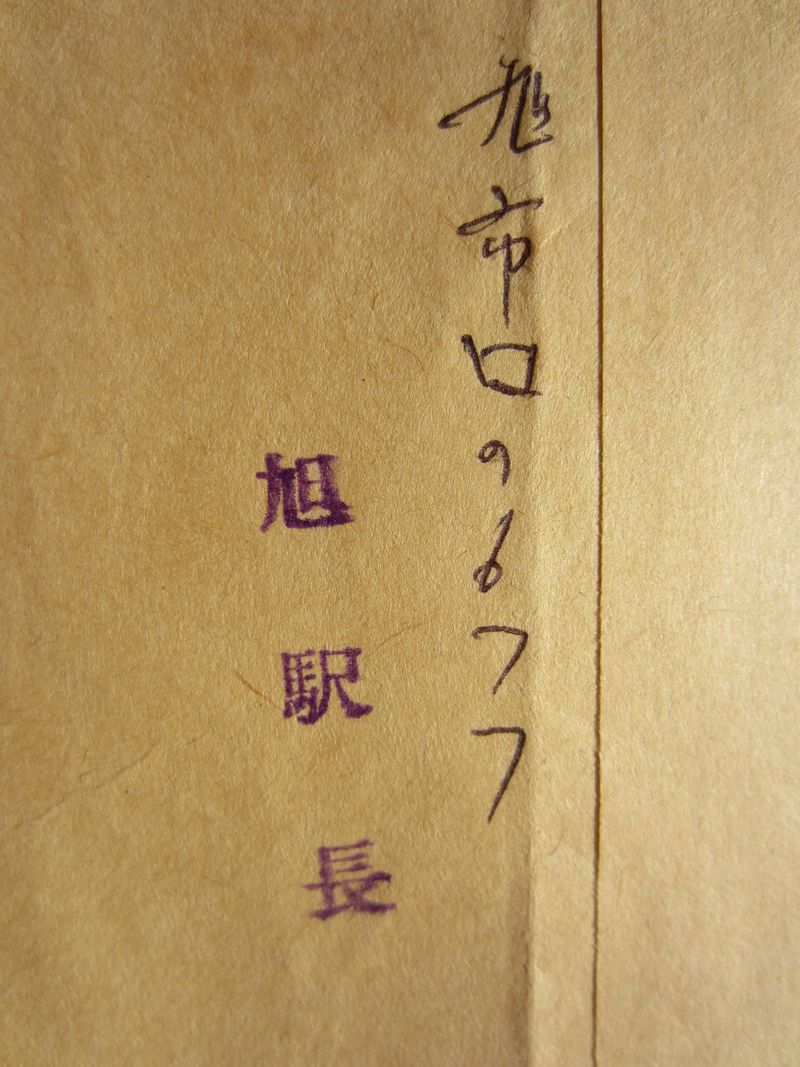 旭市ロの677
旭駅長